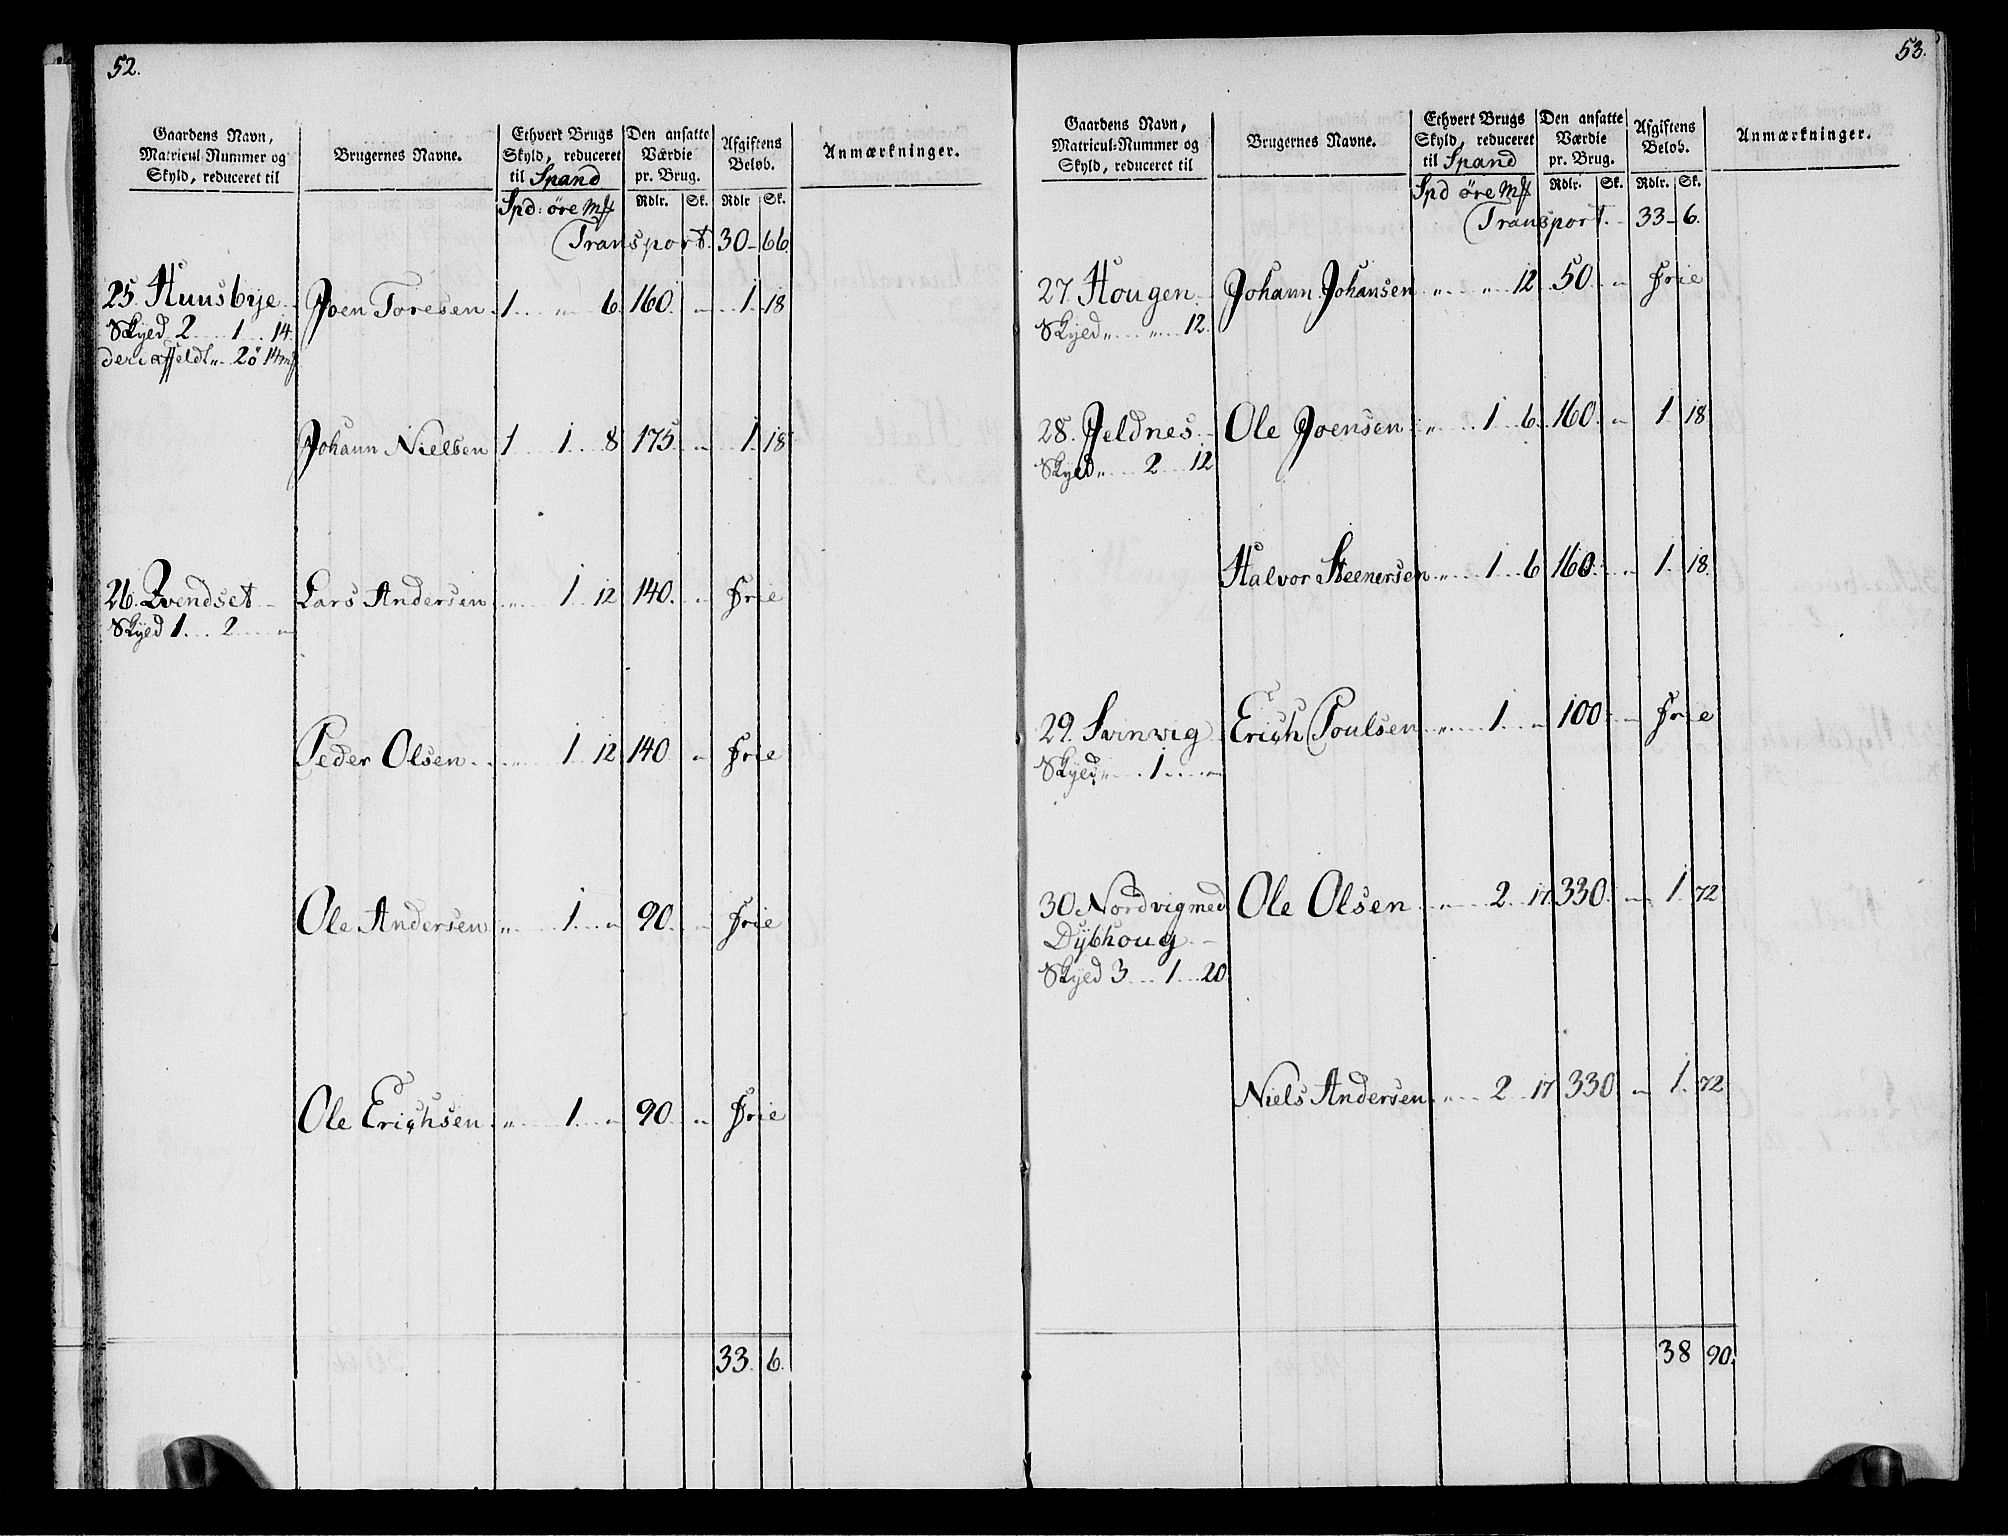 52.
Gaardens Navn, Matricul-Nummer og Skyld, reduceret til
Brugernes Navne.
Ethvert Brugs Skyld, reduceret til Spand
Den ansatte Værdie pr. Brug.
Afgiftens Beløb.
Anmærkninger.
Spd: øre mß Rdlr. Sk. Rdlr Sk.
Transport. 30 - 66.
25. Huusbye Joen Toresen. 1 .. „ 6. 160. „ 1. 18
Skyld 2 .... 1 ... 14.
deri affeldt „ 2ö 14mß
Johann Nielsen 1 .. 1 .. 8 175. „ 1. 18
26. Qvendset Lars Andersen „ 1 12 140. „ Frie
Skyld 1 ... 2 ... „
Peder Olsen „ 1 12 140 „ Frie
Ole Andersen „ 1 .. „ 90. „ Frie
Ole Erichsen „ 1 .. „ 90. „ Frie
33. 6.
53.
Gaardens Navn, Matricul-Nummer og Skyld, reduceret til
Brugernes Navne.
Ethvert Brugs Skyld, reduceret til Spand
Den ansatte Værdie pr. Brug.
Afgiftens Beløb.
Anmærkninger.
Spd øre mß Rdlr. Sk. Rdlr. Sk.
Transport. 33 - 6.
27. Hougen. Johann Johansen „ „ 12 50. „ Frie
Skyld „ ... „ ... 12.
28. Jeldnes Ole Joensen „ 1 6. 160. „ 1 18
Skyld „ ... 2 ... 12
Halvor Steenersen „ 1 6 160. „ 1. 18.
29. Svinvig Erich Poulsen „ 1 .. „ 100. „ Frie
Skyld „ ... 1 ... „
30 Nordvig med Ole Olsen „ 2 .. 17 330. „ 1. 72
Dybhoug
Skyld 3 ... 1 ... 20
Niels Andersen „ 2 .. 17 330 „ 1. 72
38 90.